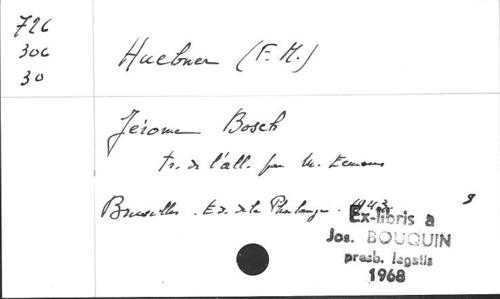 726
306
30
Huebner (F. M.)
Jérome Bosch
tr. de l'all. par M.
Bruxelles. Ed. de la Phalange. 1943.
8
Ex-libris a
Jos. BOUQUIN
presb. legatis
1968